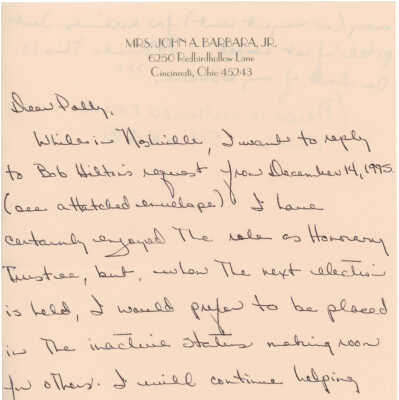 MRS. JOHN A. BARBARA, JR.
6250 Redbirdhollow Lane
Cincinnati, Ohio 45243
Dear Polly,
While in Nashville, I want to reply
to Bob Hilton's request from December 14, 1995.
(see attatched envelope) I have
certainly enjoyed The role as Honorary
Trustee, but, when The next election
is held, I would prefer to be placed
in The inactive status making room
for others. I will continue helping